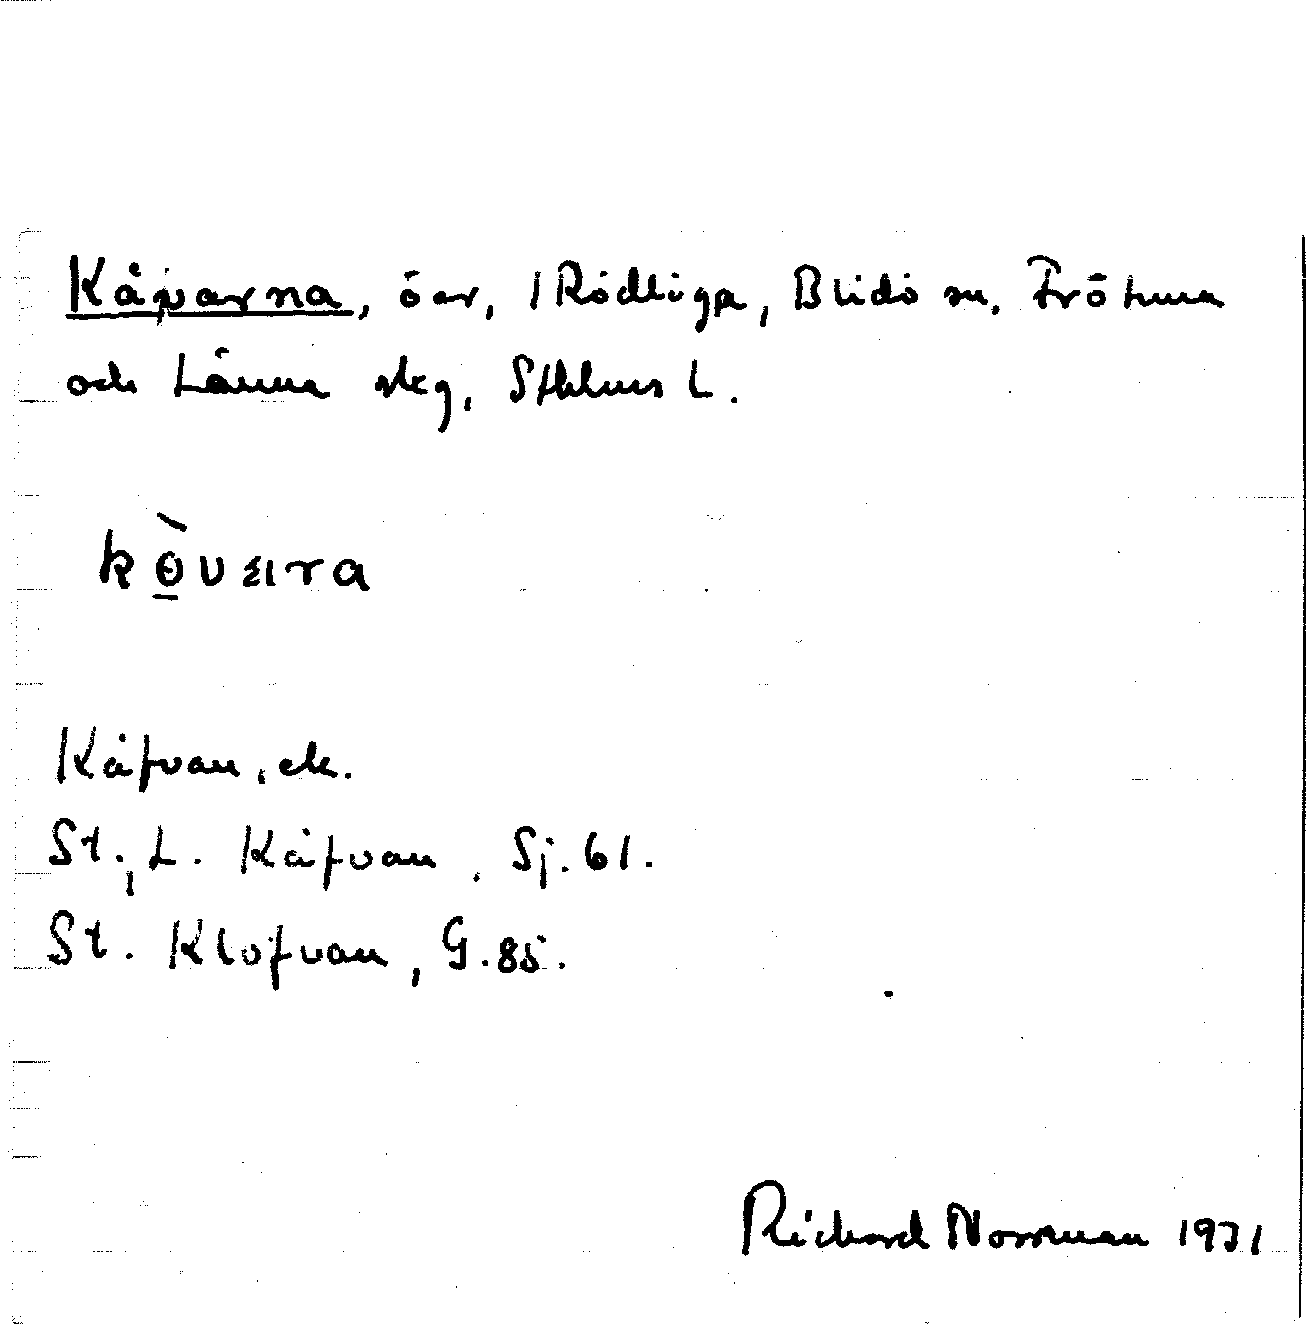 Kåvarna, öar, i Rödlöga, Blidö sn, Frötuna
och Länna skg, Sthlms L.
kòvεɪra
Kåfvan, ek.
St., L. Kåfvan, Sj. 61.
St. Klofvan, G. 85.
Richard Norrman 1931